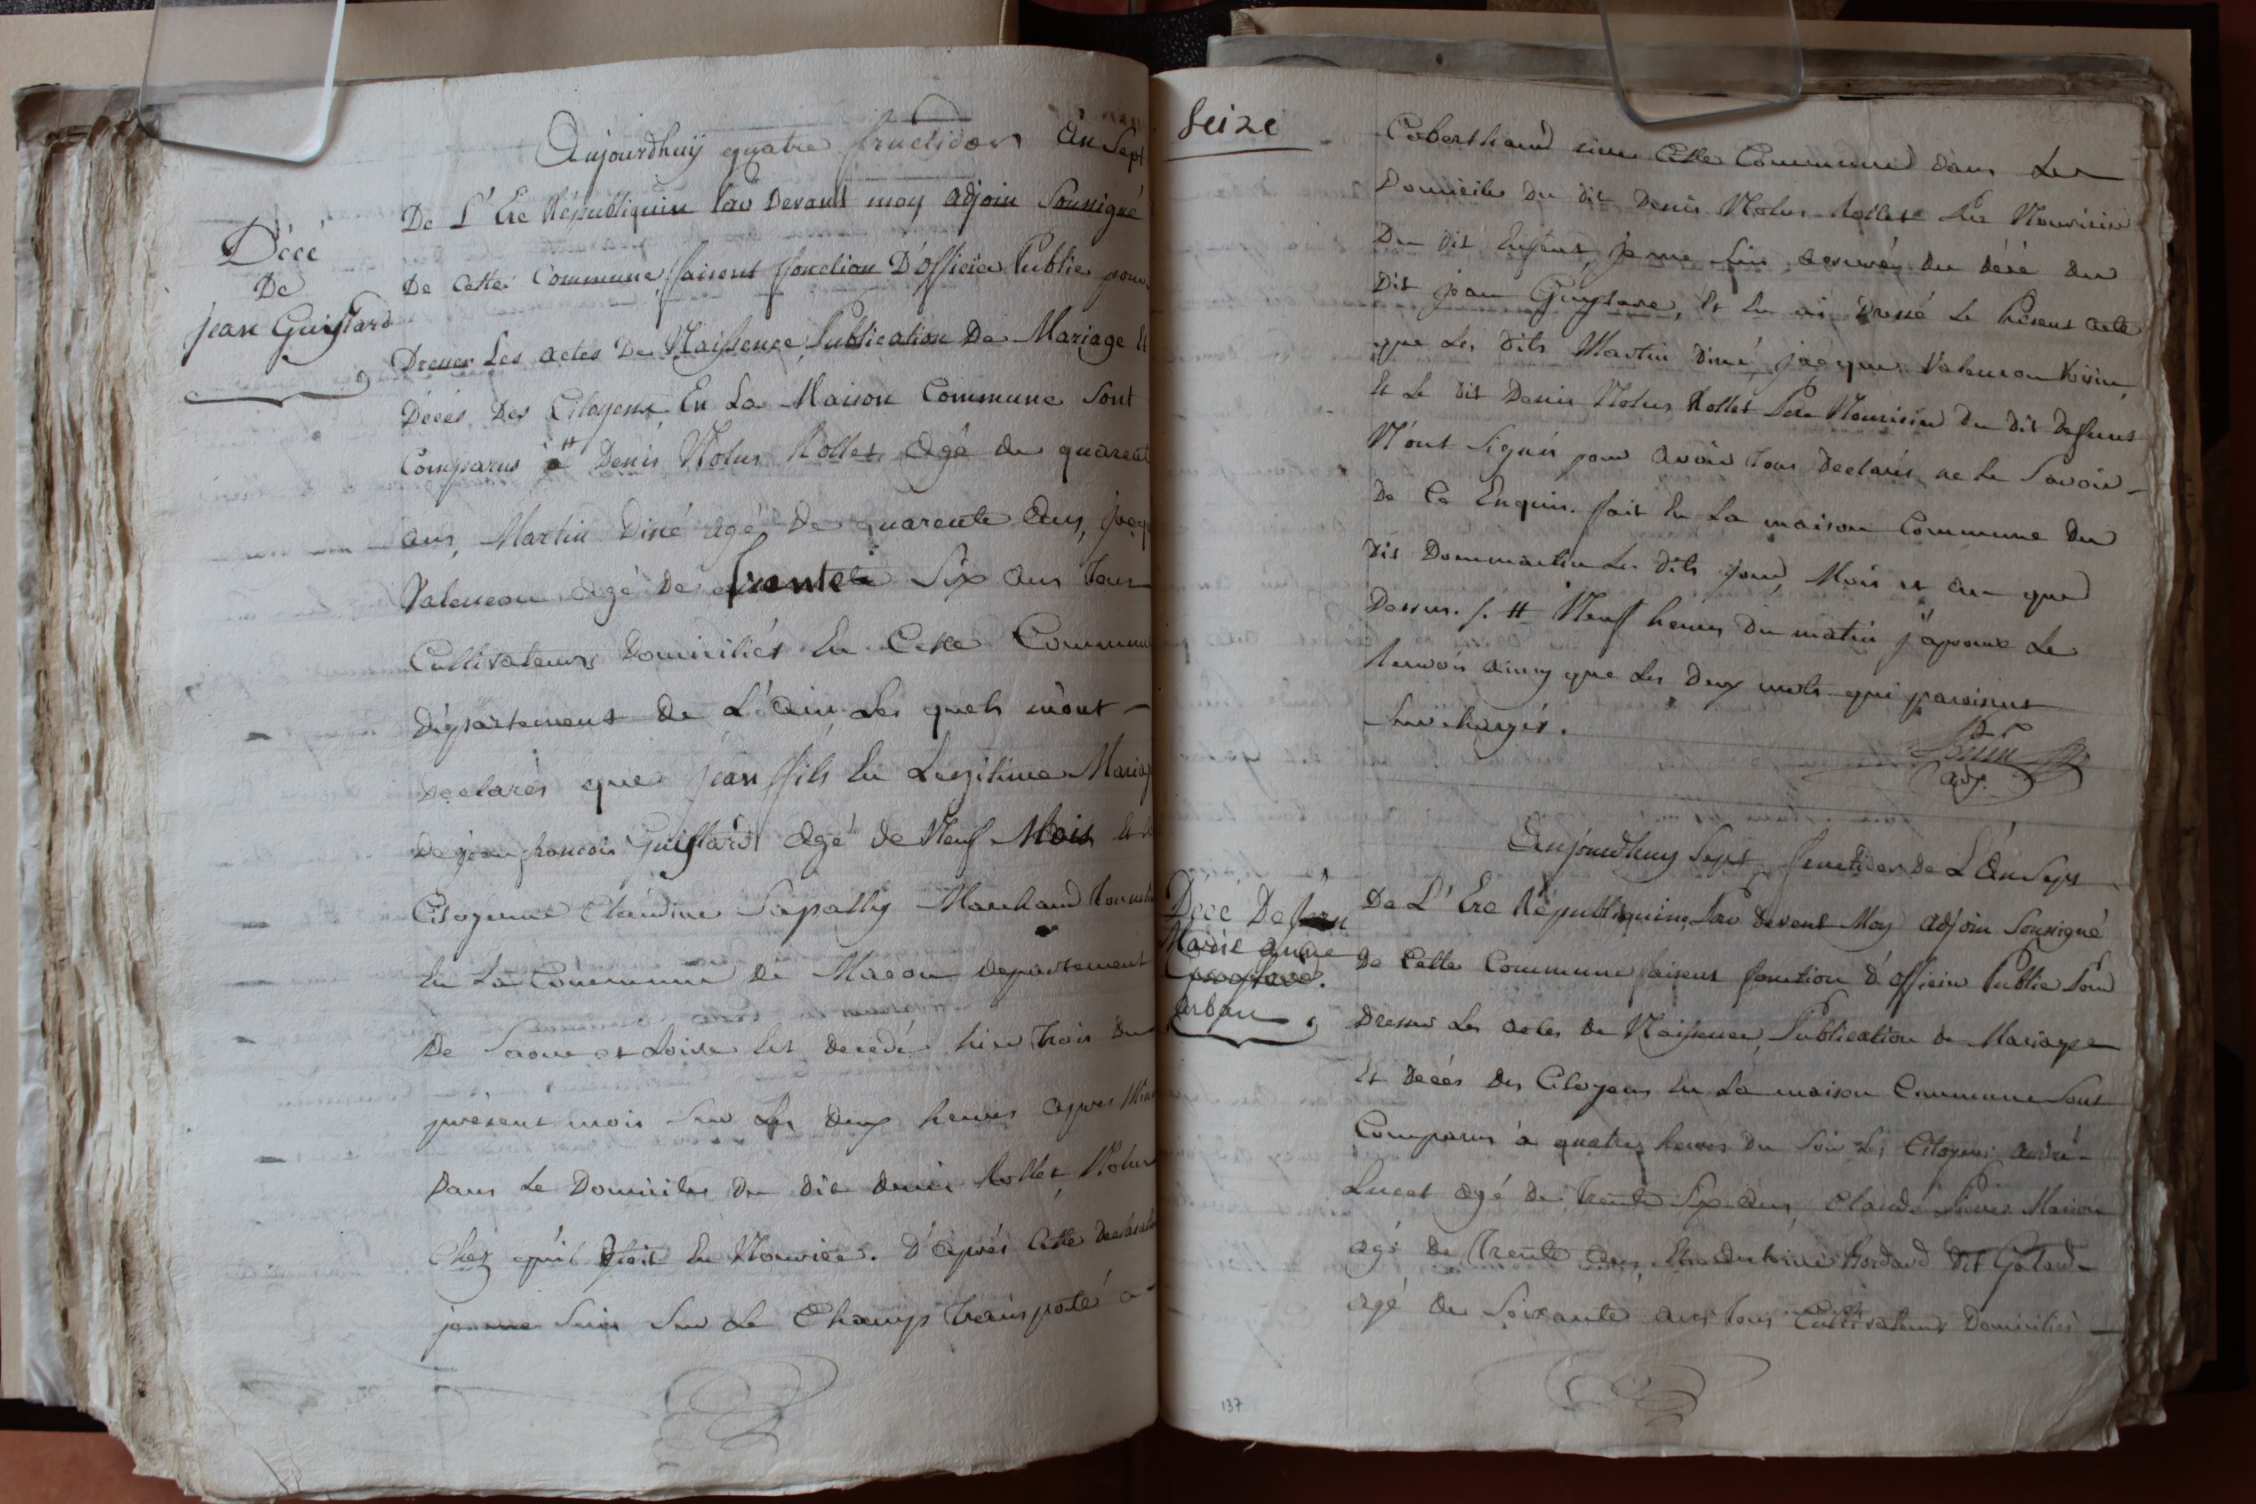 Aujourdhuÿ quatre fructidor An Sept
De L'Ere Républiquin Par Devant moy adjoin Soussigné
De Cette Commune faisent fonction D'Officier Public pour
Dresser Les actes De Naissence, Publication De Mariage Et
Décés Des Citoyens En La Maison Commune Sont
Comparus # Denis Rollet Agé de quarent
ans, Martin Diné agé De quarente Ans, Jacq
Valencon agé De trente Six ans tous
Cultivateurs Domiciliés En Cette Commun
Département de L'Ain, Les quels m'ont
Declarés que Jean fils En Legitime Mariag
De jean francois Guistard Agé de Neuf Mois Et
Citoyenne Claudine Marchand
En La Commune de Macon departement
De Saone et Loire Est decedé hier trois du
présent mois Sur Les deux heures apres
Dans Le Domicile Du dit denis Rollet
Chez qu'il Etoit En Nourice. D'après Cette
je me Suis Sur Le Champs transporté a
Décé
De
jean Guistard
Seize
Coberthoud cette Commune dans Le
Domicile du dit Denis Rollet Pere Nouricier
Du dit Enfent, je me Suis assuré du décé du
Dit jean Guystare, Et En ai dressé Le Présent acte
que Les dits Martin Diné, jacques Valencon
Et Le dit Denis Rollet Pere Nouricier du dit Defunt
N'ont Signés pour avoir tous Declarés ne Le Savoir
De Ce Enquis. fait En La maison Commune Du
Dit Dommartin Les dits jour, Mois et an que
Dessus. /. # Neuf heures Du matin j'aprouve Le
Renvois ainsy que Les deux mots qui paroissent
Surchargés.
adj.
Aujourdhuy Sept fructidor de L'An Sept
De L'Ere Républiquine, Par devent Moy adjoin Soussigné
De Cette Commune faisent fonction d'Officier Public Pour
Dresser Les actes de Naissence, Publication de Mariage
Et Décés Des Citoyens En La maison Commune Sont
Comparus a quatres heures Du Soir Les Citoyens André
Lucet agé De trente Six ans, Claude
agé De trente ans, dit
agé de Soixante ans, tous Cultivateurs Domiciliés
Décé De
Marie anne
137